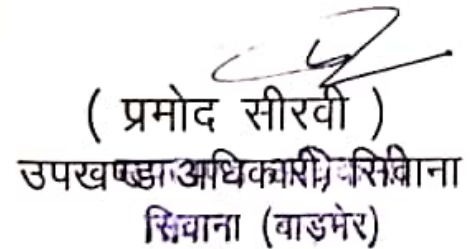 ( प्रमोद सीरवी )
उपखण्ड अधिकारी, सिवाना
सिवाना (बाड़मेर)